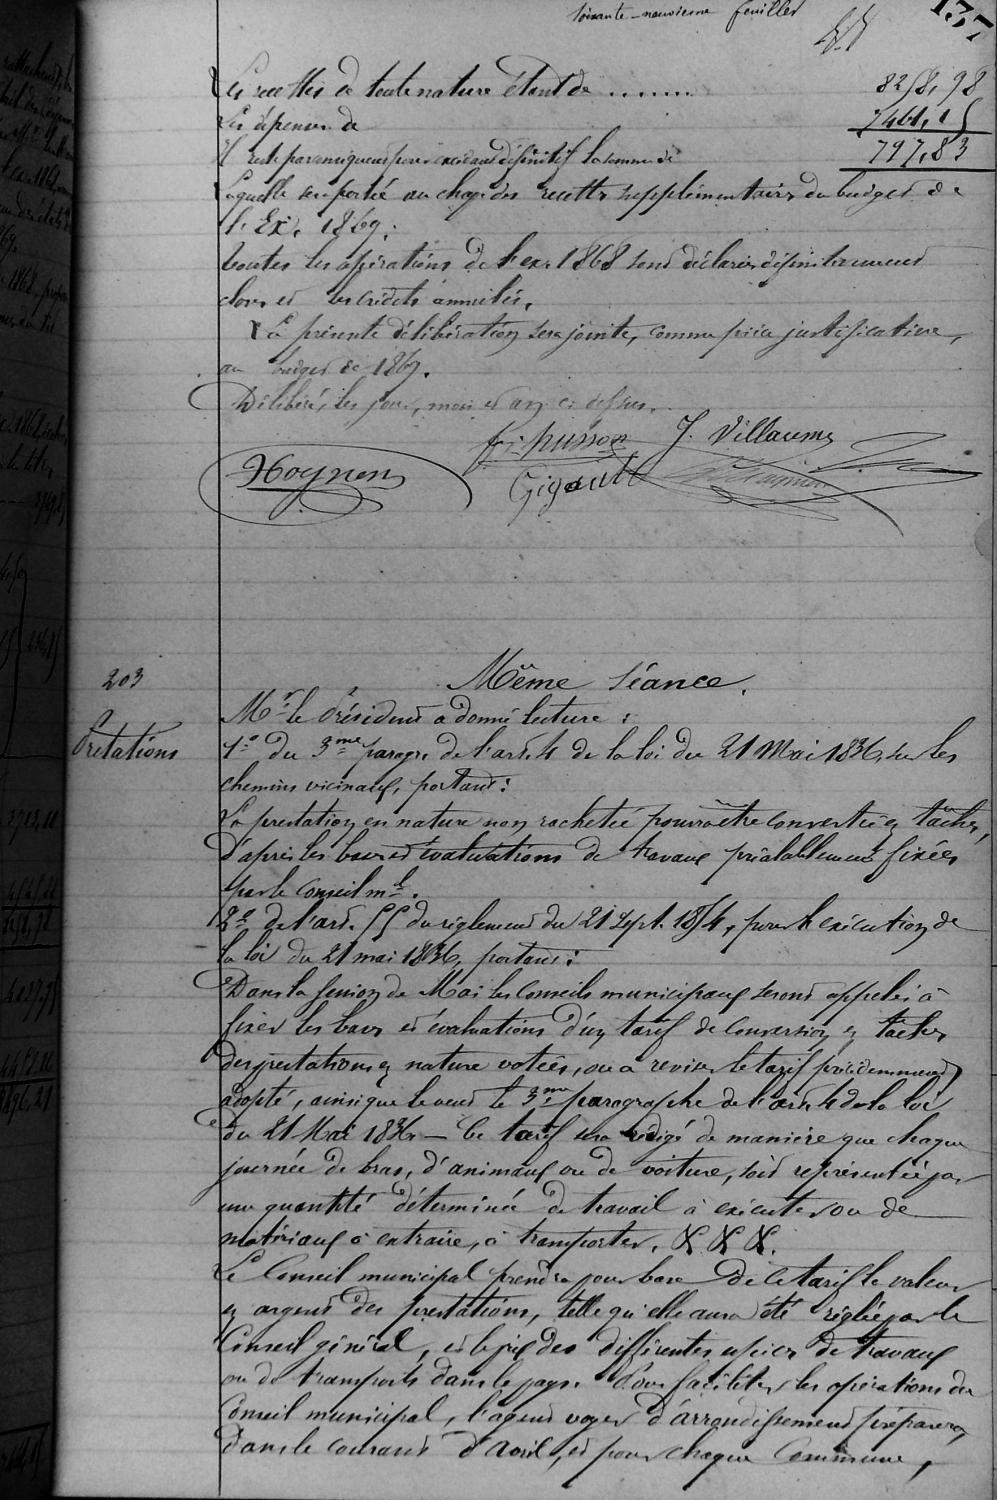 soixante-neuvième feuillet
137
Les recettes de toute nature étant de ....... 8258,98
Les dépenses de 7461,15
Il reste par conséquent pour excédant définitif la somme de 797,83
Laquelle sera portée au chap. des recettes supplémentaires du budget de
l'Ex. 1869.
Toutes les opérations de l'ex. 1868 sont déclarées définitivement
closes et les crédits annulés.
La présente délibération sera jointe, comme pièce justificative,
au budget de 1869.
Délibéré, les jour, mois et an ci-dessus.
F. Husson J. Villaume
Hoynen Gigault
203 Même Séance.
Mr. le Président a donné lecture :
Prestations 1º du 3me paragr. de l'art. 4 de la loi du 21 Mai 1836, sur les
chemins vicinaux, portant :
La prestation en nature non rachetée pourra être convertie en tâches,
d'après les bases et évaluations de travaux préalablement fixées
par le Conseil ml.
2º de l'art. 55 du règlement du 21 Sept. 1854, pour l'exécution de
la loi du 21 mai 1836, portant :
Dans la session de Mai les Conseils municipaux seront appelés à
fixer les bases et évaluations d'un tarif de conversion en tâches
des prestations en nature votées, ou à reviser le tarif précédemment
adopté, ainsi que le veut le 3me paragraphe de l'art. 4 de la loi
du 21 Mai 1836. — Ce tarif sera rédigé de manière que chaque
journée de bras, d'animaux ou de voiture, soit représentée par
une quantité déterminée de travail à exécuter ou de
matériaux à extraire, à transporter, &. &. &.
Le Conseil municipal prendra pour base de ce tarif la valeur
en argent des prestations, telle qu'elle aura été réglée par le
Conseil général, et le prix des différentes espèces de travaux
ou de transports dans le pays. Pour faciliter les opérations du
Conseil municipal, l'agent voyer d'arrondissement préparera,
dans le courant d'Avril, et pour chaque Commune,